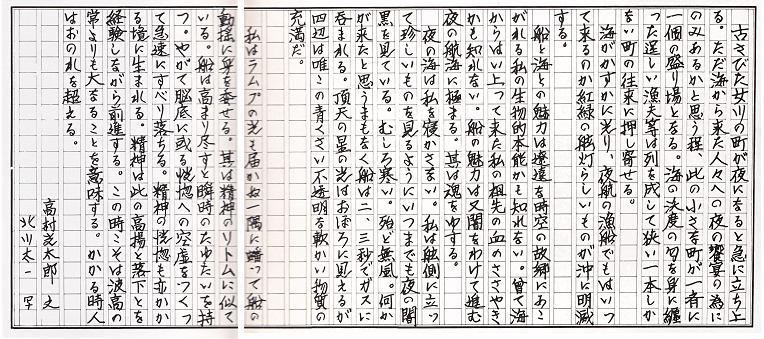 古さびた女川の町が夜になると急に立ち上
る。ただ海から来た人々への夜の饗宴の為に
のみあるかと思う程、此の小さな町が一斉に
一個の盛り場となる。海の法度の匂を身に纏
った逞しい漁夫等は列を成して狭い一本しか
ない町の往来に押し寄せる。
海がかすかに光り、夜航の漁船でもはいっ
て来るのか紅緑の舷灯らしいものが沖に明滅
する。
船と海との魅力は遼遠な時空の故郷にあこ
がれる私の生物的本能かも知れない。曽て海
からはい上って来た私の祖先の血のささやき
かも知れない。船の魅力は又闇をわけて進む
夜の航海に極まる。其は魂をゆする。
夜の海は私を寝かさない。私は舷側に立っ
て珍しいものを見るようにいつまでも夜の闇
黒を見ている。むしろ寒い。殆ど無風。何か
が来たと思うまもなく船は二、三秒でガスに
呑まれる。頂天の星の光はおぼろに見えるが
四辺は唯この青くさい不透明な軟かい物質の
充満だ。
私はラムプの光も届かぬ一隅に踞って船の
動揺に身を委せる。其は精神のリトムに似て
いる。船は高まり尽すと瞬時のたゆたいを持
つ。やがて脳底に或る恍惚への空虚をつくっ
て急速にすべり落ちる。精神の恍惚も亦かか
る境に生まれる。精神は此の高揚と落下とを
経験しながら前進する。この時こそは波高の
常よりも大なることを意味する。かかる時人
はおのれを超える。
高村光太郎 文
北川太一 写